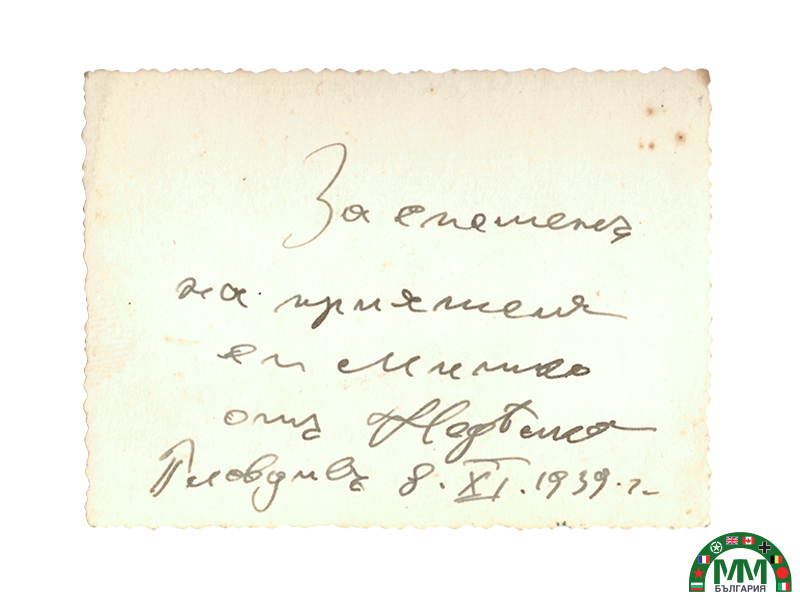 За споменъ
на приятеля
си Митко
отъ Недѣлко
Пловдивъ 8.XI.1939.г.
MM
БЪЛГАРИЯ